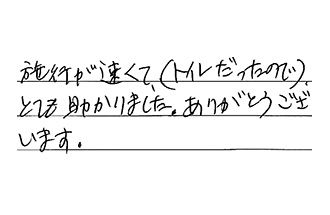 施行が速くて、(トイレだったので)、
とても助かりました。ありがとうござ
います。